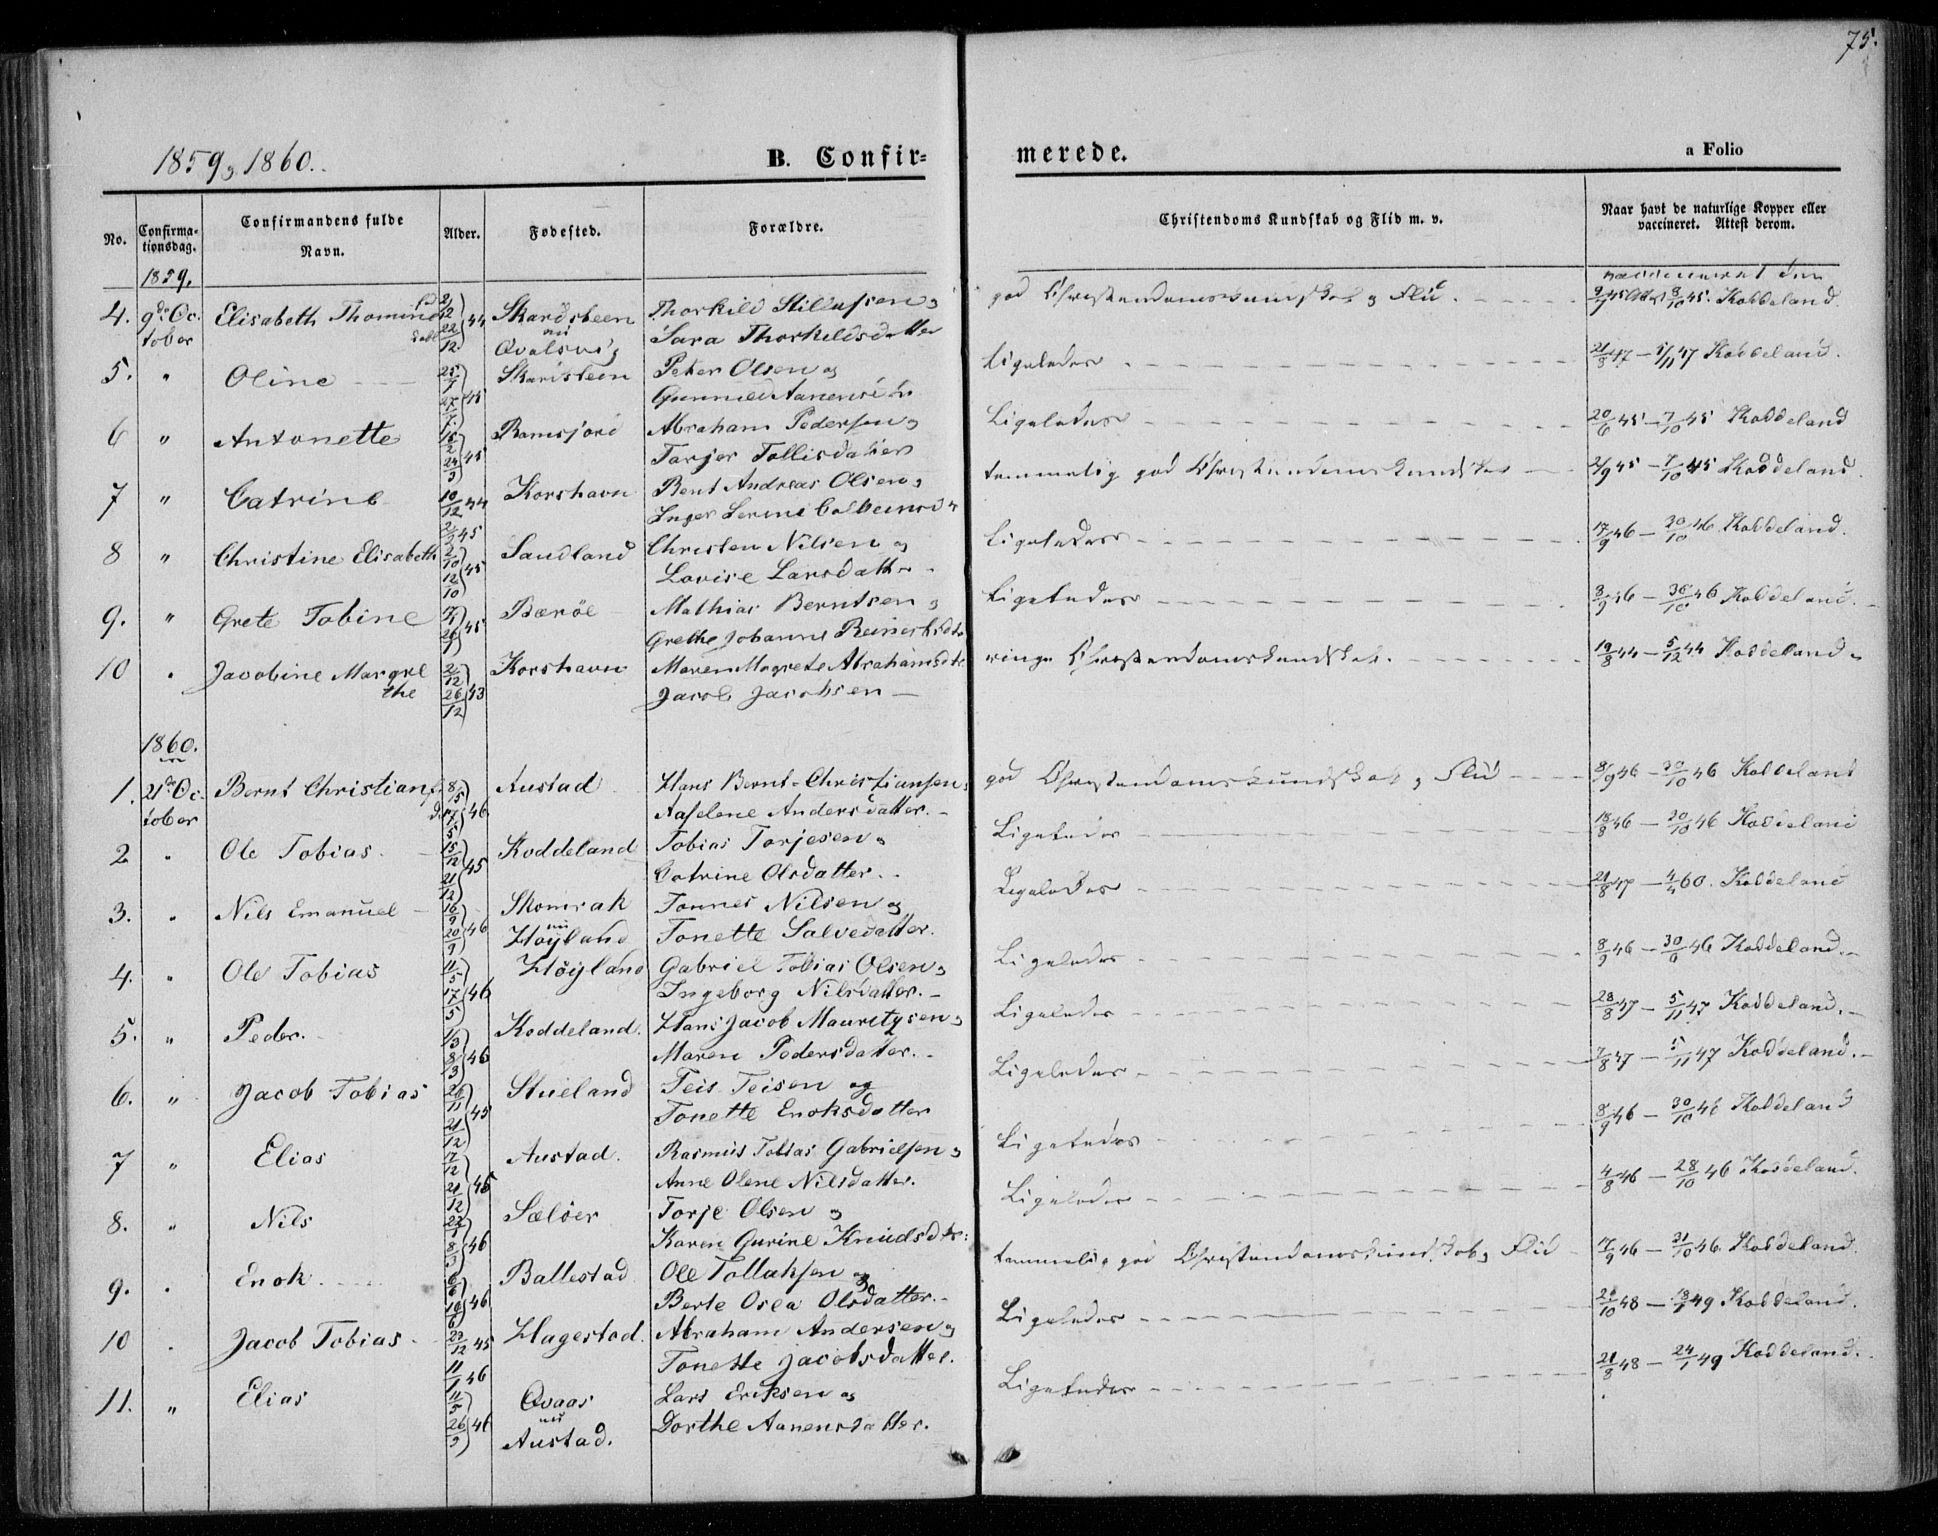 75.
1859, 1860.
B. Confirmerede.
a Folio
No. Confirmationsdag. Confirmandens fulde Navn. Alder. Fødested. Forældre. Christendoms Kundskab og Flid m. v. Naar havt de naturlige Kopper eller vaccineret. Attest derom.
1859.
4. 9de Oc- Elisabeth Thomine fød 2/12 44 Skardsteen Thorkild Stillufsen og god Christendomskundskab og Flid 8/10 45. Koddeland.
tober døbt 22/12 nu Qvalsvig Sara Thorkildsdatter
5. " Oline 25/7 45 Skardsteen Peter Olsen og Ligeledes 21/8 47 — 5/11 47 Koddeland.
27/7 Gunnild Aanensdtr
6 " Antonette 15/2 45 Ramsjord Abraham Pedersen og Ligeledes 20/6 45 — 7/10 45 Koddeland
24/3 Torjer Tollisdatter
7 " Catrine 10/12 44 Korshavn Bent Andreas Olsen og temmelig god Christendomskundskab 2/9 45 — 7/10 45 Koddeland.
2/2 45 Inger Serine
8 " Christine Elisabeth 2/10 45 Sandland Christen Nilsen og Ligeledes 17/9 46 — 30/10 46 Koddeland.
12/10 Lovise Larsdatter
9. " Grete Tobine 45 Bærøe Mathias Berntsen og Ligeledes 8/9 46 — 30/10 46 Koddeland.
Grethe Johanne Reinertsdtr
10 " Jacobine Margre- 2/12 43 Korshavn Maren Magrete Abrahamsdtr ringe Christendomskundskab. 19/8 44 — 5/12 44 Koddeland.
the 26/12 Jacob Jacobsen
1860.
1. 21de Oc- Bernt Christian f. 8/5 46 Austad Hans Bernt Christiansen og god Christendomskundskab og Flid 8/9 46 — 30/10 46 Koddeland
tober d. 17/5 Aaselene Andersdatter.
2 " Ole Tobias. 15/12 45 Koddeland Tobias Torjesen og Ligeledes 18/8 46 — 20/10 46 Koddeland
21/12 Catrine Olsdatter.
3. " Nils Emanuel 16/9 46 Skomrak Tønnes Nilsen og Ligeledes 21/8 47 — 4/4 60. Koddeland
20/9 nu Høyland Tonette Salvedatter.
4. " Ole Tobias 11/5 46 Høyland Gabriel Tobias Olsen og Ligeledes 8/9 46 — 46 Koddeland.
17/5 Ingeborg Nilsdatter.
5. " Peder. 1/3 46 Koddeland. Hans Jacob Mauritzsen og Ligeledes 28/8 47 — 5/11 47 Koddeland.
8/3 Maren Pedersdatter.
6. " Jacob Tobias 26/11 45 Stueland Teis Teisen og Ligeledes 7/8 47 — 5/11 47 Koddeland.
21/12 Tonette Enoksdatter
7 " Elias 17/12 45 Austad. Rasmus Tobias Gabrielsen og Ligeledes 8/9 46 — 30/10 46 Koddeland
21/12 Anne Olene Nilsdatter.
8. " Nils 22/1 46 Sæløer Torje Olsen og Ligeledes 4/8 46 — 28/10 46 Koddeland.
8/3 Karen Gurine Knudsdtr:
9. " Enok 6/6 46 Ballestad Ole Tollaksen og temmelig god Christendomskundskab og Flid 17/9 46 — 21/10 46. Koddeland.
10/6 Berte Osea Olsdatter.
10 " Jacob Tobias 23/12 45 Hagestad. Abraham Andersen og Ligeledes 48 — 49 Koddeland.
11/1 46 Tonette Jacobsdatter.
11. " Elias 11/5 46 Qvaas Lars Eriksen og Ligeledes 21/8 48 — 24/1 49 Koddeland.
26/9 nu Austad. Dorthe Aanensdatter.